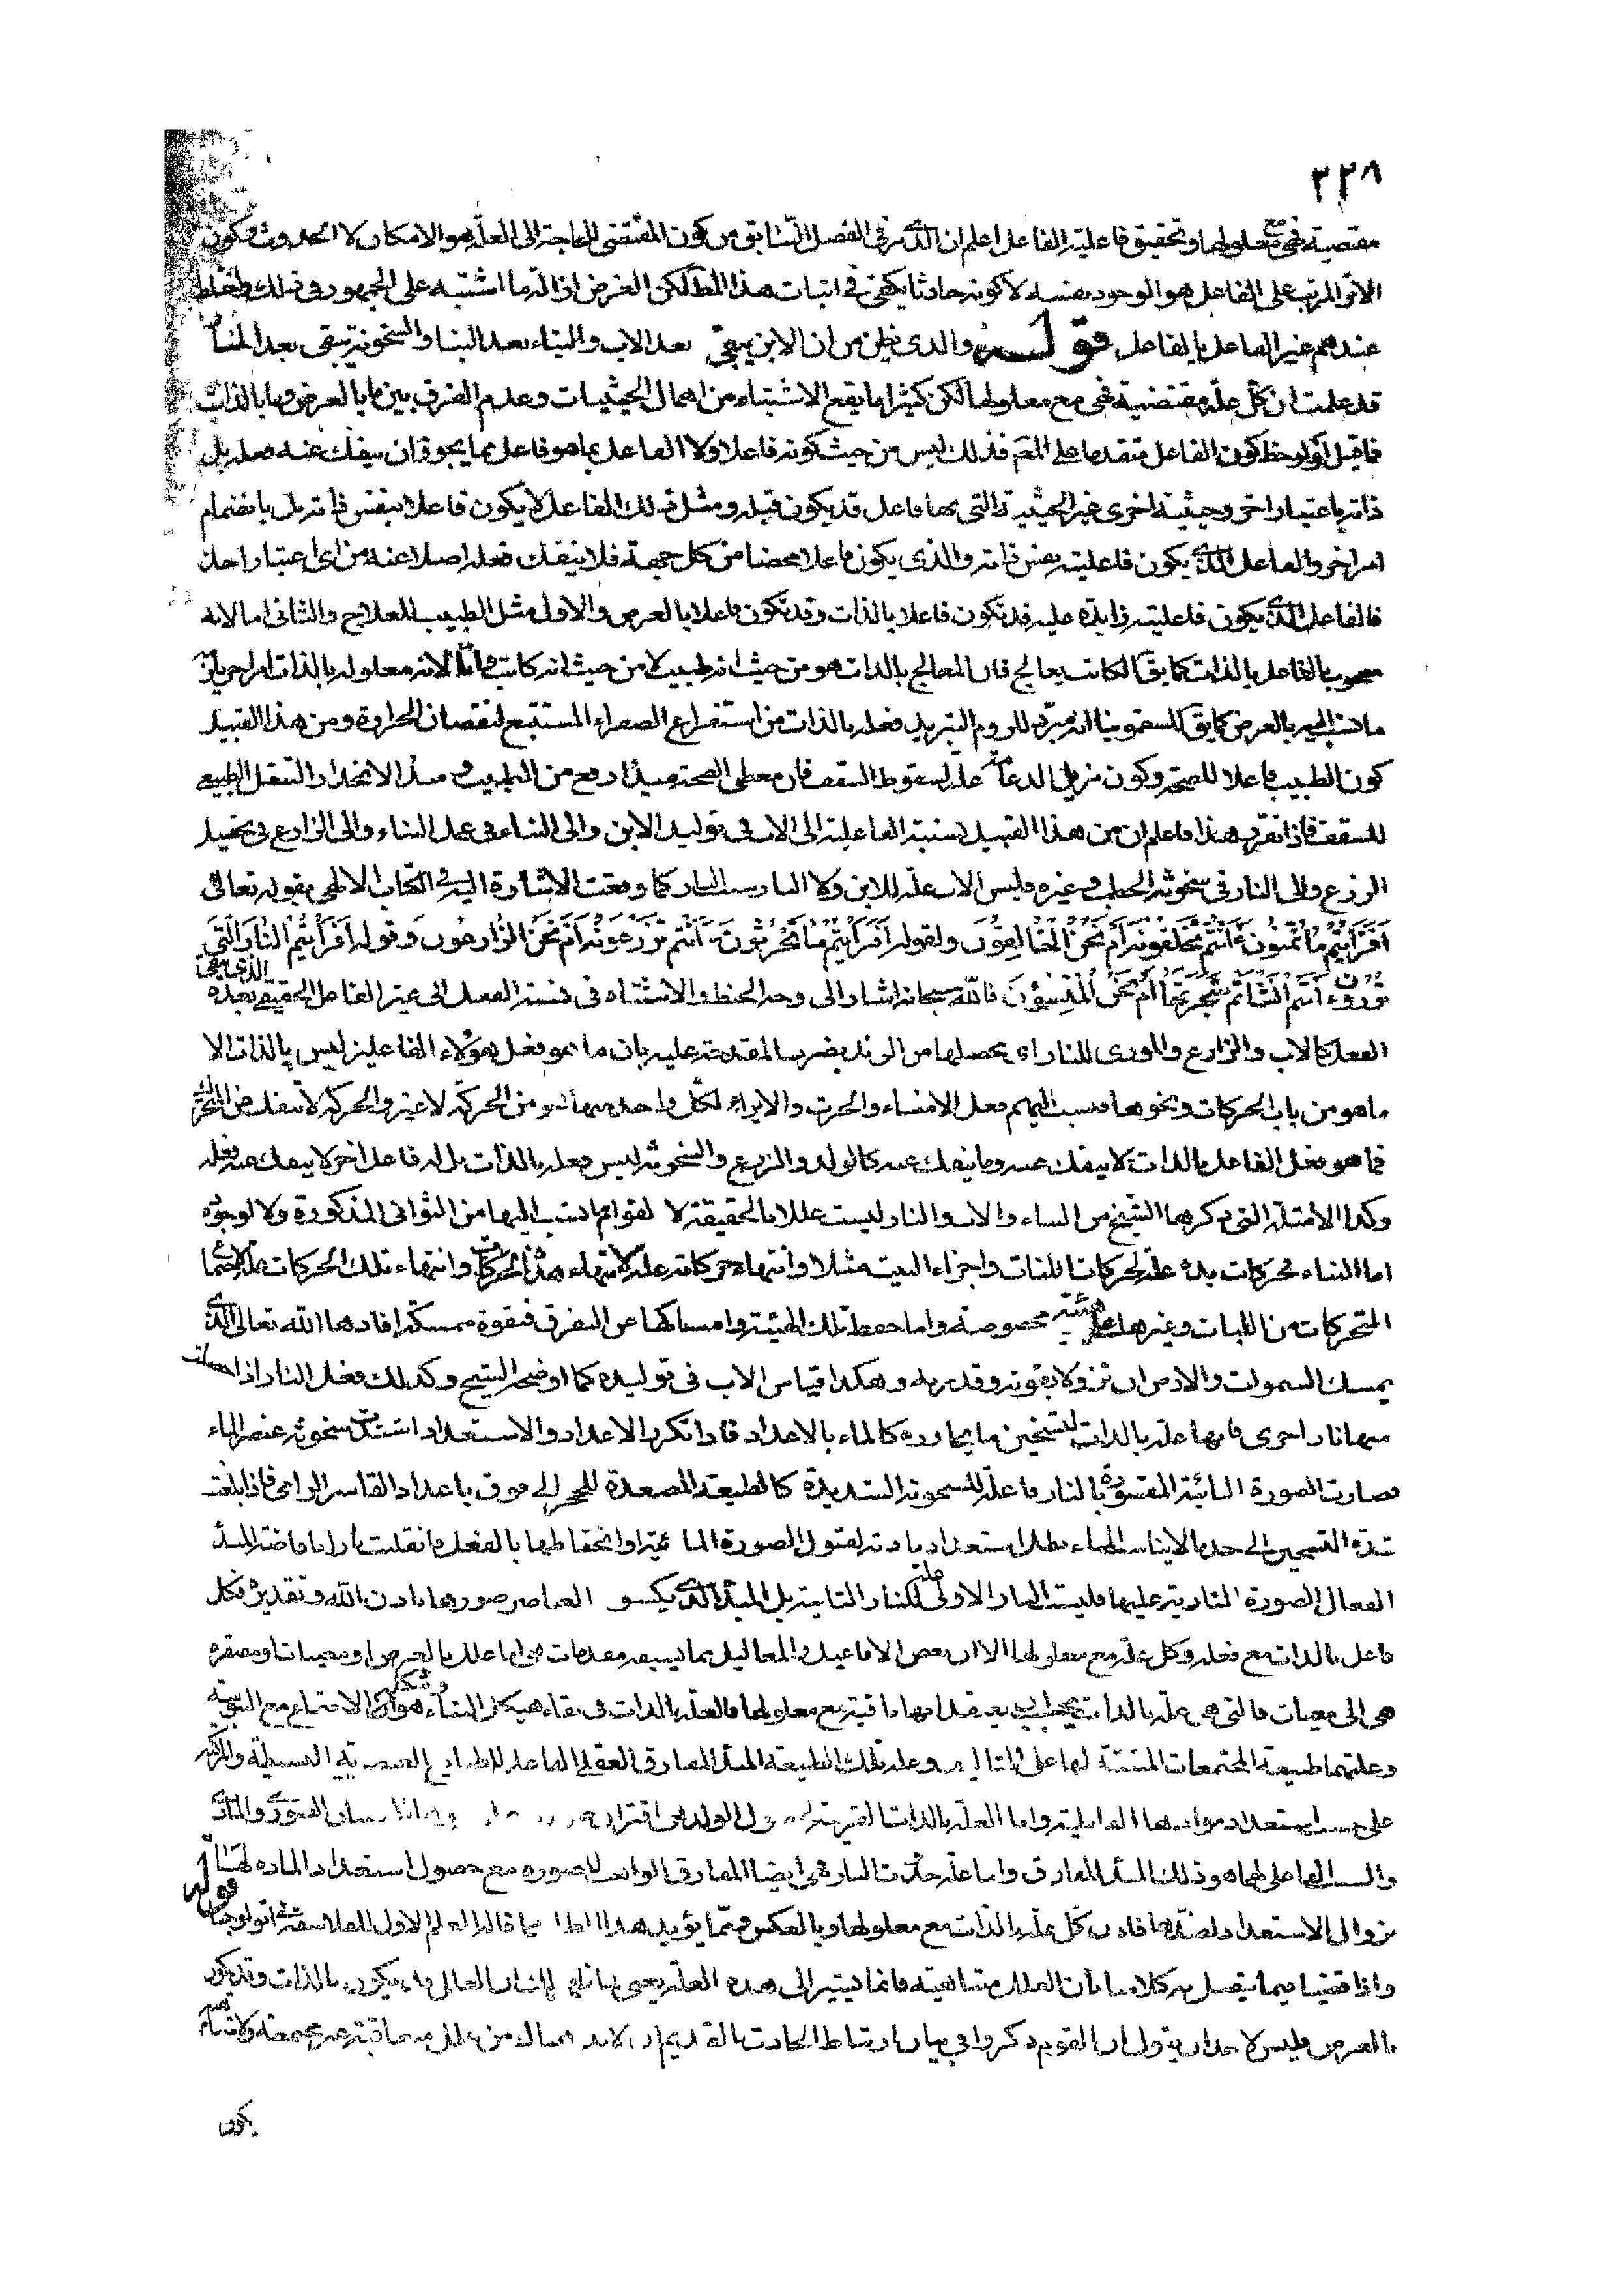 ٢٢٨
مقتضية فهى مع معلولها وتحقيق فاعلية الفاعل اعلم ان الذى مر فى الفصل السّابق من كون المقتضى للحاجة الى العلة هو الامكان لا الحدوث وكون
الاثر المرتب على الفاعل هو الوجود بنفسه لا كونه حادثا يكفى فى اثبات هذا المط لكن الغرض ازالة ما اشتبه على الجمهور فى ذلك واختلط
عندهم غير الفاعل بالفاعل قوله والذى يظن من ان الابن يبقى بعد الاب والبناء بعد البنا والسخونة تبقى بعد النا
قد علمت ان كل علة مقتضية فهى مع معلولها لكن كثيرا ما يقع الاشتباه من اهمال الحيثيات وعدم الفرق بين ما بالعرض وما بالذات
فما قيل او لوحظ كون الفاعل متقدما على فذلك ليس من حيث كونه فاعلا ولا الفاعل بما هو فاعل مما يجوز ان ينفك عنه فعله بل
ذاته باعتبار اخر وحيثية اخرى غير الحيثية التى بها فاعل قد يكون قبله ومثل ذلك الفاعل لا يكون فاعلا بنفس ذاته بل بانضمام
امر اخر والفاعل الذى يكون فاعليته بنفس ذاته والذى يكون فاعلا محضا من كل جهة فلا ينفك فعله اصلا عنه من اى اعتبار اخذ
فالفاعل الذى يكون فاعليته زايدة عليه قد تكون فاعلا بالذات وقد تكون فاعلا بالعرض والاول مثل الطبيب للعلاج والثانى اما لانه
مصحوب بالفاعل بالذات كما يق الكاتب يعالج فان المعالج بالذات هو من حيث انه طبيب لا من حيث انه كاتب واما لانه معلوله بالذات امر اخر يلزمه
ما نسب اليه بالعرض كما يق للسقمونيا انه مبرد للزوم التبريد فعله بالذات من استفراغ الصفراء المستتبع لنقصان الحرارة ومن هذا القبيل
كون الطبيب فاعلا للصحة وكون مزيل الدعامة علة لسقوط السقف فان معطى الصحة مبدأ ارفع من الطبيب و مبدأ الانحدار الثقل الطبيعى
للسقف فاذا تقرر هذا فاعلم ان من هذا القبيل نسبة الفاعلية الى الاب فى توليد الابن والى البناء فى عمل البناء والى الزارع فى تحصيل
الزرع والى النار فى سخونة الحطب وغيره فليس الاب علة للابن ولا النار سبب النار كما وقعت الاشارة اليه فى الكتاب الالهى بقوله تعالى
اَفَرَأَيْتُمْ مَا تُمْنُونَ ءَاَنْتُمْ تَخْلُقُونَهُ اَمْ نَحْنُ الْخَالِقُونَ ولقوله اَفَرَأَيْتُمْ مَا تَحْرُثُونَ ءَاَنْتُمْ تَزْرَعُونَهُ اَمْ نَحْنُ الزَّارِعُونَ وقوله اَفَرَأَيْتُمُ النَّارَ الَّتِى
تُورُونَ ءَاَنْتُمْ اَنْشَأْتُمْ شَجَرَتَهَا اَمْ نَحْنُ الْمُنْشِؤُنَ فالله سبحانه اشار الى وجه الخبط والاشتباه فى نسبة الفعل الى غير الفاعل الحقيقى الذى يبقى بعده
الفعل كالاب والزارع والمورى للنار اى محصلها من الزند بضرب المقدحة عليه بان ما هو فعل هؤلاء الفاعلين ليس بالذات الا
ما هو من باب الحركات ونحوها فنسب اليهم فعل الامناء والحرث والايراء لكل واحد منها نحو من الحركة لا غير والحركة لا تنفك عن المحرك
فما هو فعل الفاعل بالذات لا ينفك عنه وما ينفك عنه كالولد والزرع والسخونة ليس فعله بالذات بل له فاعل اخر لا ينفك عنه فعله
وكذا الامثلة التى ذكرها الشيخ من البناء والاب والنار ليست عللا بالحقيقة لا لقوام ما نسب اليها من الثوانى المذكورة ولا لوجوده
اما البناء فحركات يده علة لحركات اللبنات واجزاء البيت مثلا وانتهاء حركاته علة لانتهاء هذه الحركات وانتهاء تلك الحركات علة لاجتماع
المتحركات من اللبنات وغيرها على هيئة مخصوصة واما حفظ تلك الهيئة وامساكها عن التفرق فبقوة ممسكة افادها الله تعالى الذى
يمسك السموات والارض ان تزولا بقوته وقدرته وهكذا قياس الاب فى توليده كما اوضحه الشيخ وكذلك فعل النار اذا حصلت
منها نار اخرى فانها علة بالذات لتسخين ما يجاوره كالماء بالاعداد فاذا تكرر الاعداد والاستعداد اشتدت سخونة عنصر الماء
فصارت الصورة المائية المقسورة بالنار فاعلة للسخونة الشديدة كالطبيعة المصعدة للحجر الى فوق باعداد القاسر الرامى فاذا بلغت
شدة التسخين الى حد ما لا يناسب الماء بطل استعداد مادته لقبول الصورة المائية او انحفاظها بالفعل فانقلبت نارا بافاضة المبدأ
الفعال الصورة النارية عليها فليست النار الاولى علة للنار الثانية بل المبدأ الذى يكسو العناصر صورها باذن الله وتقديره فكل
فاعل بالذات مع فعله وكل علة مع معلولها الا ان بعض الافاعيل والمعاليل مما يسبقه معدات هى اما علل بالعرض او معينات ومفتقرة
هى الى معينات فالتى هى علة بالذات يجب ان باقية مع معلولها فالعلة بالذات فى بقاء هيكل البناء وشكله هو الاجتماع مع اليبوسة
وعلتهما طبيعة المجتمعات المثبتة لها على التاليف وعلة تلك الطبيعة المبدأ المفارق العقلى الفاعل للطبايع العنصرية البسيطة والمركبة
على حسب استعداد موادها القابلية واما العلة بالذات القريبة الولد هى اقتران الصورة والمادة
والسبب الفاعلى لهما هو ذلك المبدأ المفارق واما علة حدوث النار فهى ايضا المفارق الواهب للصورة مع حصول استعداد المادة لها
بزوال الاستعداد لضدها فاذن كل علة بالذات مع معلولها وبالعكس ومما يؤيد هذا المطلب ما قاله المعلم الاول للفلاسفة فى اثولوجيا قوله
واذا قضينا فيما يتصل به كلامنا بان العلل متناهية فانما نشير الى هذه العلة يعنى بها ان العلل ما يكون بالذات وقد يكون
بالعرض فليس لاحد ان يقول ان القوم ذكروا فى بيان ارتباط الحادث بالقديم ان لا بد هناك من علل متعاقبة غير مجتمعة ولا
يكون